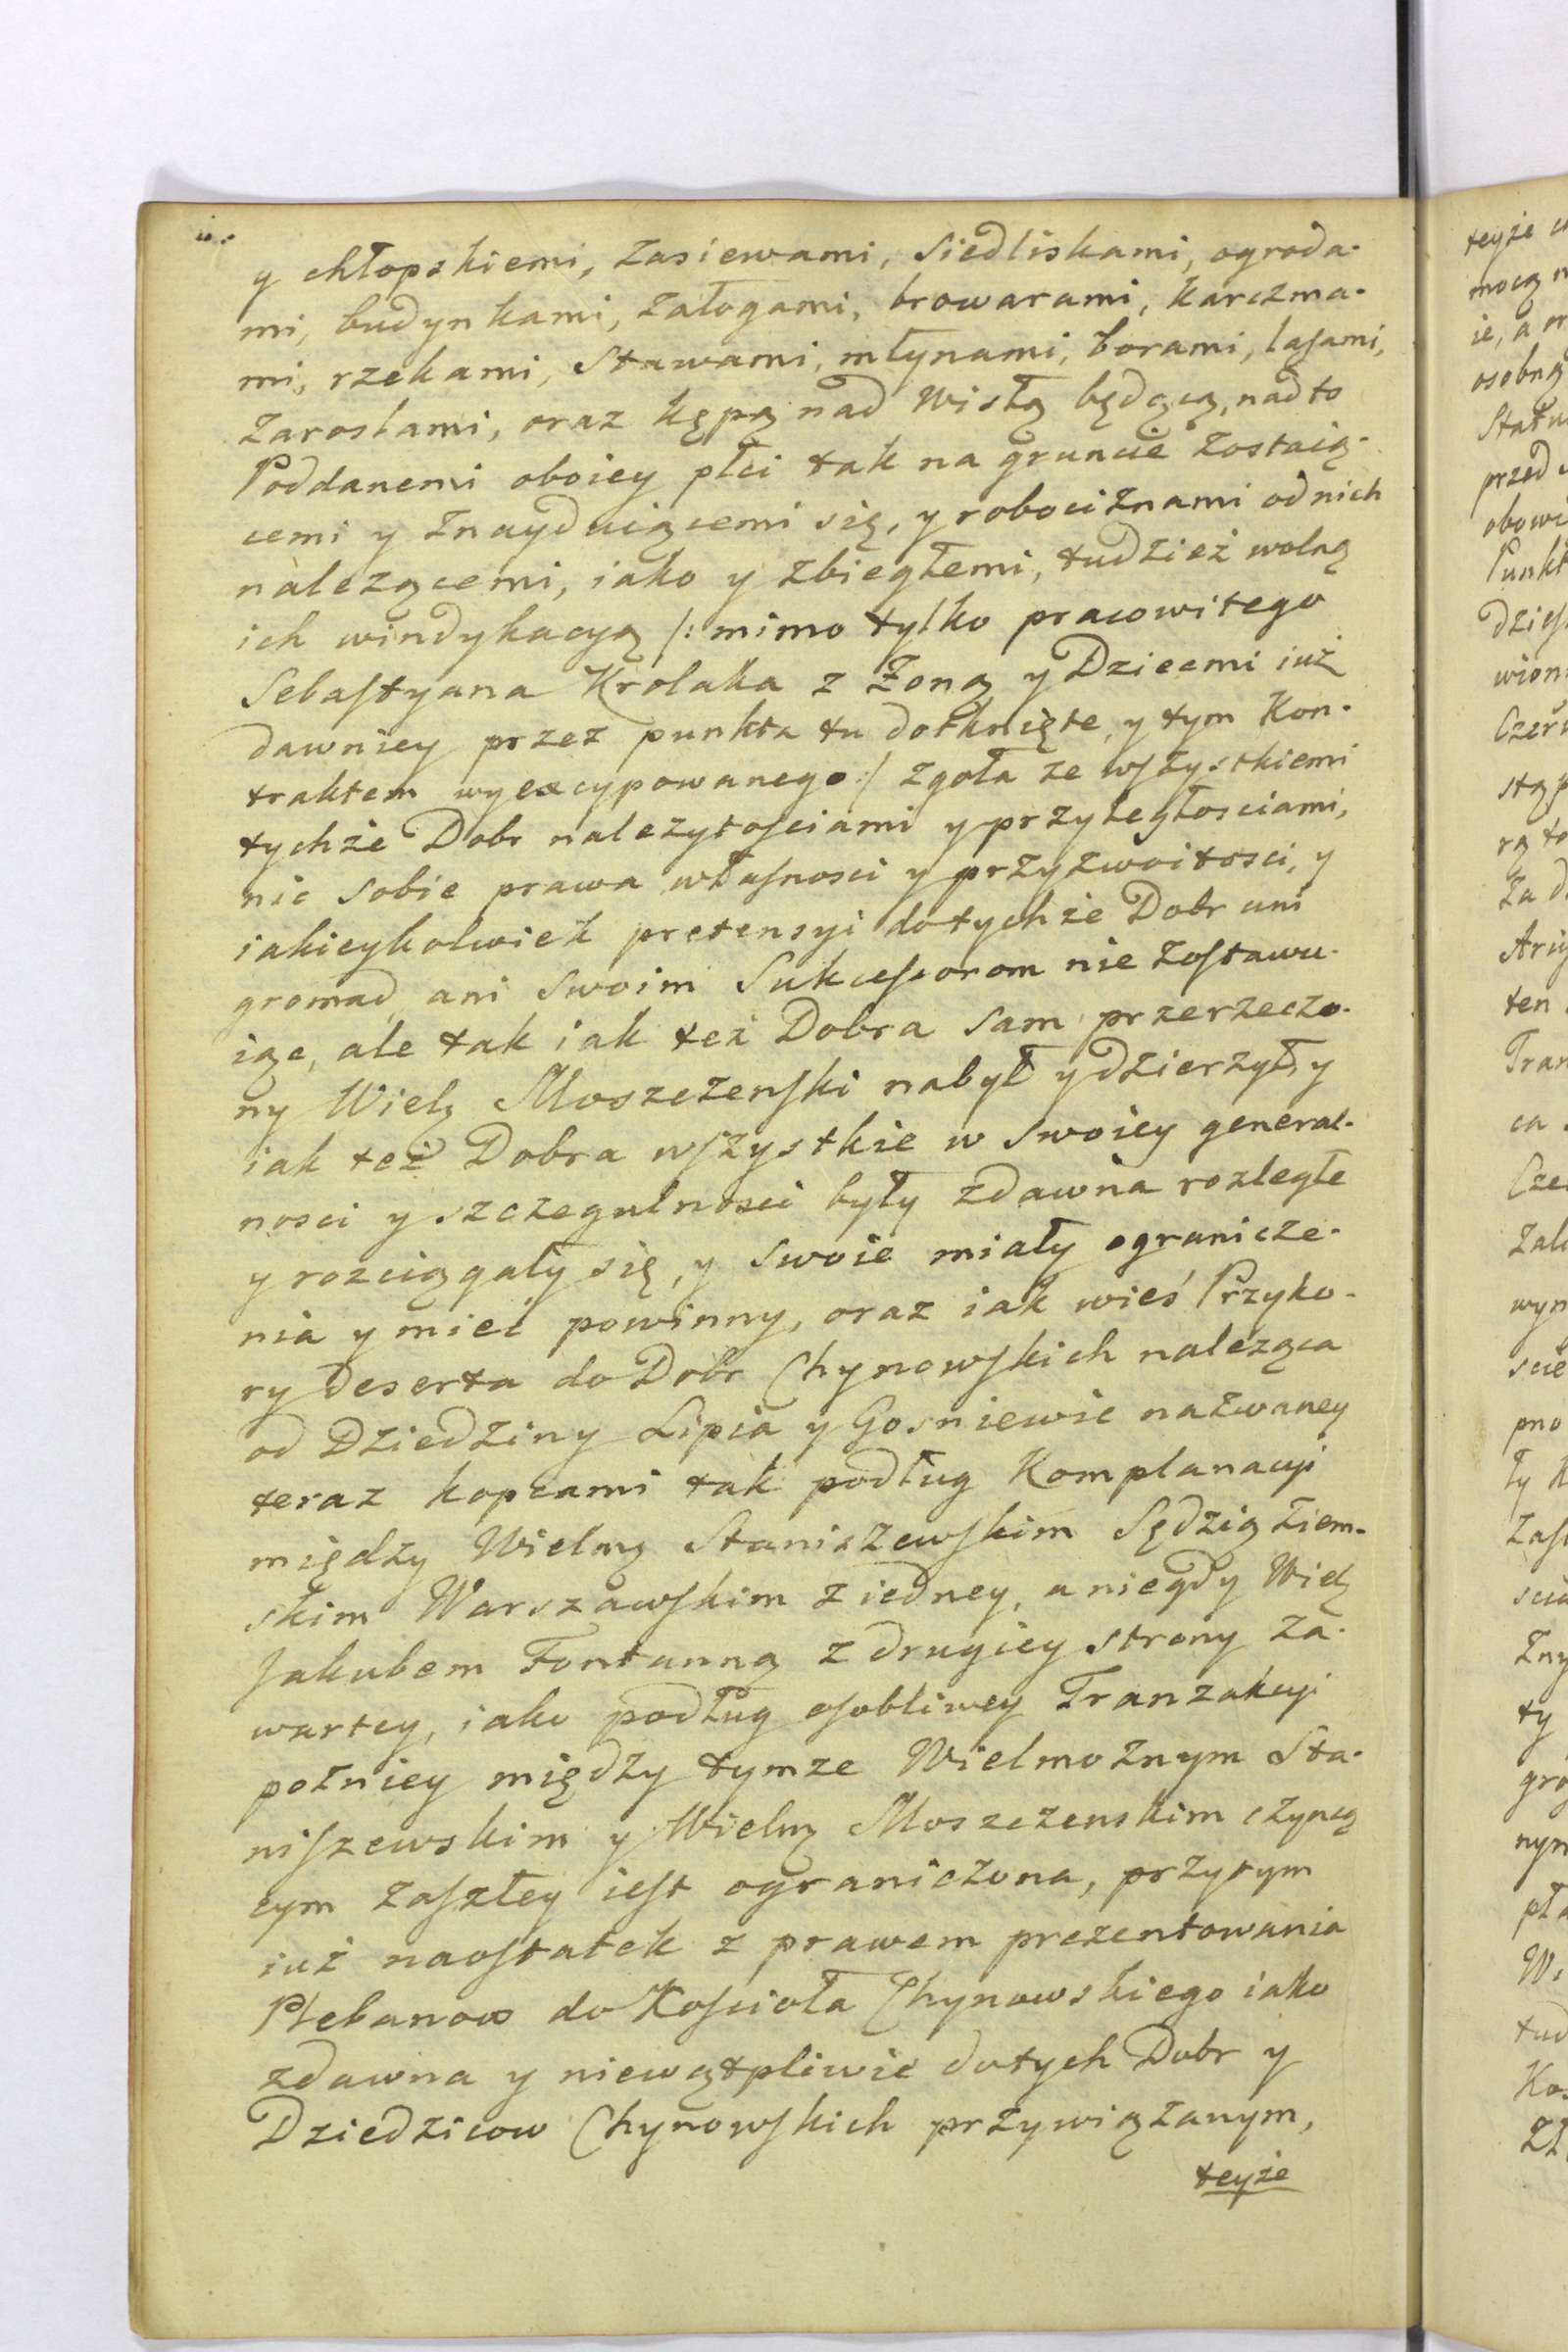 y chłopskiemi, zasiewami, siedliskami, ogroda-
mi, budynkami, załogami, browarami, karczma-
mi, rzekami, stawami, młynami, borami, lasami,
zaroslami, oraz kępą nad Wisłą będącą, nadto
Poddanemi oboiey płci tak na gruncie zostaią-
cemi y znayduiącemi się, y robociznami od nich
nalezącemi, iako y zbiegłemi, tudzież wolną
ich windykacyą /: mimo tylko pracowitego
Sebastyana Krolaka z Zoną y Dziecmi iuż
dawniey przez punkta tu dotknięte, y tym Kon-
traktem wyexcypowanego :/ zgoła ze wszystkiemi
tychże Dobr nalezytosciami y przyległosciami,
nic sobie prawa własnosci y przyzwoitosci, y
iakieykolwiek pretensyi do tychże Dobr ani
gromad, ani swoim Sukcessorom nie zostawu-
iąc, ale tak iak też Dobra sam przerzeczo-
ny Wielg Moszczenski nabył y dzierzył, y
iak też Dobra wszystkie w swoiey general-
nosci y szczegulnosci były zdawna rozległe
y rozciągały się, y swoie miały ogranicze-
nia y mieć powinny, oraz iak wieś Przyko-
ry deserta do Dobr Chynowskich naleząca
od Dziedziny Lipia y Gosniewic nazwaney
teraz kopcami tak podług Komplanacyi
między Wielmg Staniszewskim Sędzią Ziem-
skim Warszawskim z iedney, a niegdy Wielg
Jakubem Fontanną z drugiey strony za-
wartey, iako podług osobliwey Tranzakcyi
pozniey między tymze Wielmoznym Sta-
niszewskim y Wielmg Moszczenskim czynią
cym zaszłey iest ograniczona, przytym
iuż naostatek z prawem prezentowania
Plebanow do Kościoła Chynowskiego iako
zdawna y niewątpliwie do tych Dobr y
Dziedzicow Chynowskich przywiązanym,
teyże